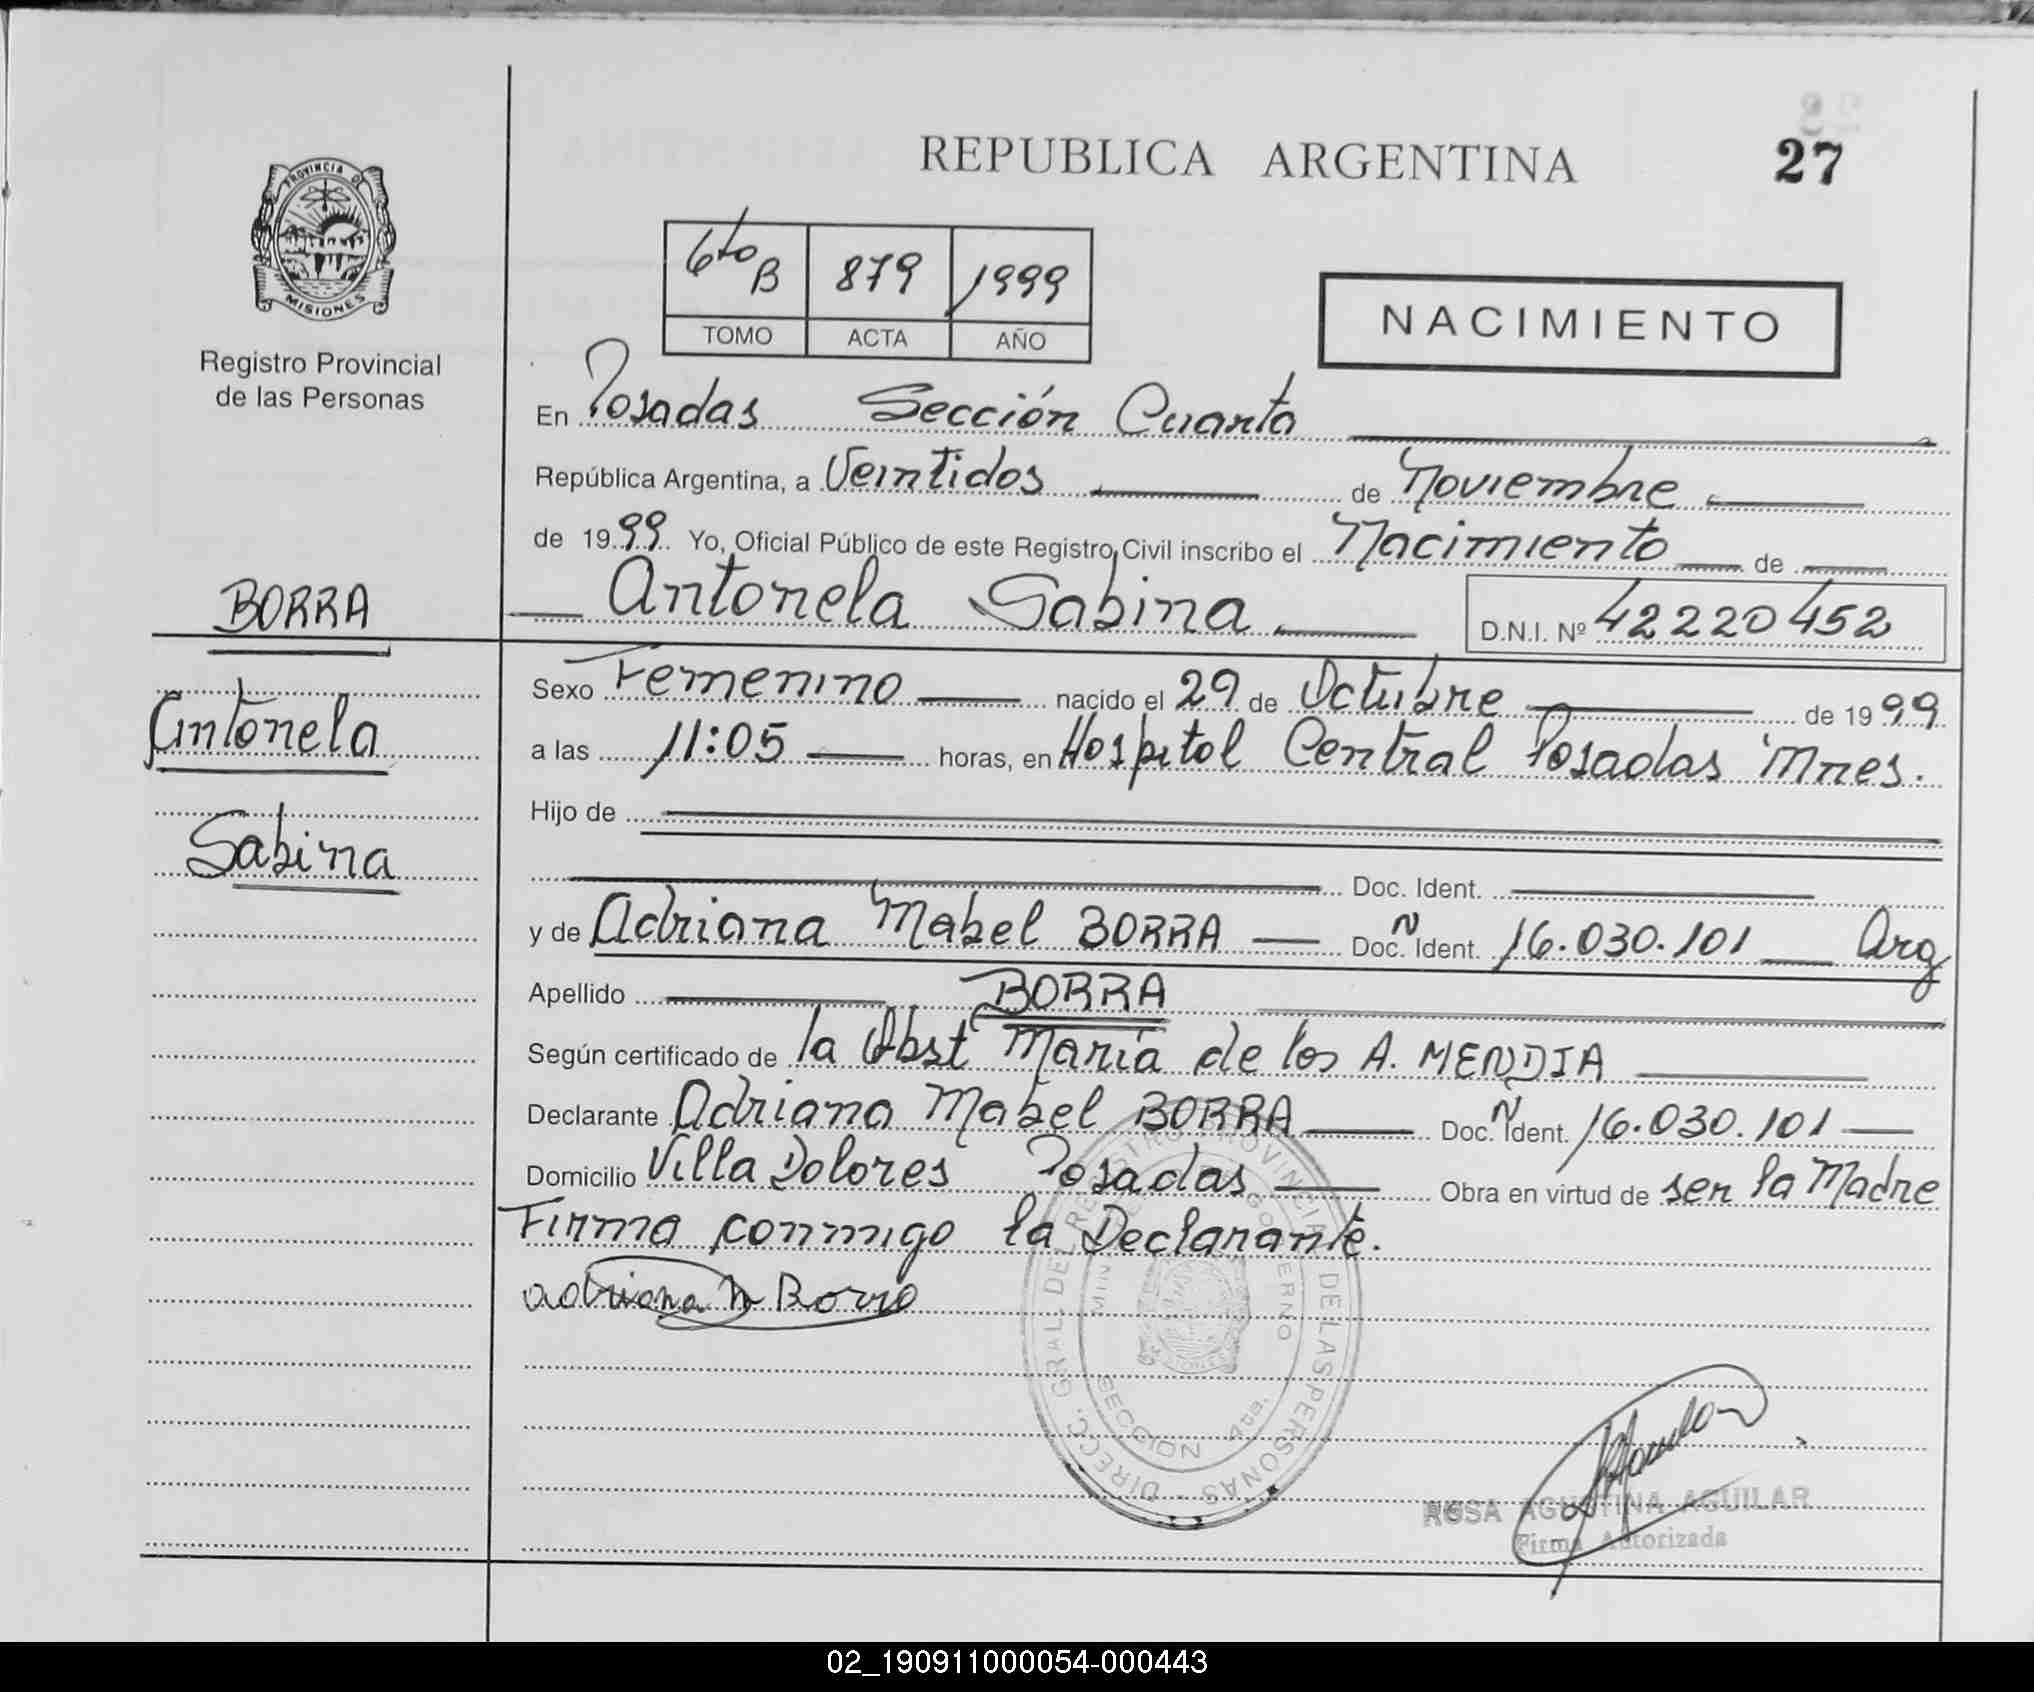 REPUBLICA ARGENTINA 27
PROVINCIA DE
MISIONES
Registro Provincial
de las Personas
6to B 879 1999
TOMO ACTA AÑO
NACIMIENTO
En Posadas Sección Cuarta
República Argentina, a Veintidos de Noviembre
de 1999 Yo, Oficial Público de este Registro Civil inscribo el Nacimiento de
BORRA
Antonela Sabina D.N.I. Nº 42220452
Antonela
Sabina
Sexo Femenino nacido el 29 de Octubre de 1999
a las 11:05 horas, en Hospital Central Posadas Mnes.
Hijo de
Doc. Ident.
y de Adriana Mabel BORRA Doc. N Ident. 16.030.101 Arg
Apellido BORRA
Según certificado de la Obst María de los A. MENDIA
Declarante Adriana Mabel BORRA Doc. N Ident. 16.030.101
Domicilio Villa Dolores Posadas Obra en virtud de ser la Madre
Firma conmigo la Declarante.
adriana M Borra
DIRECC. GRAL. DEL REGISTRO PROVINCIAL DE LAS PERSONAS
GOBIERNO
SECCION 4ta.
ROSA AGUSTINA AGUILAR
Firma Autorizada
02_190911000054-000443